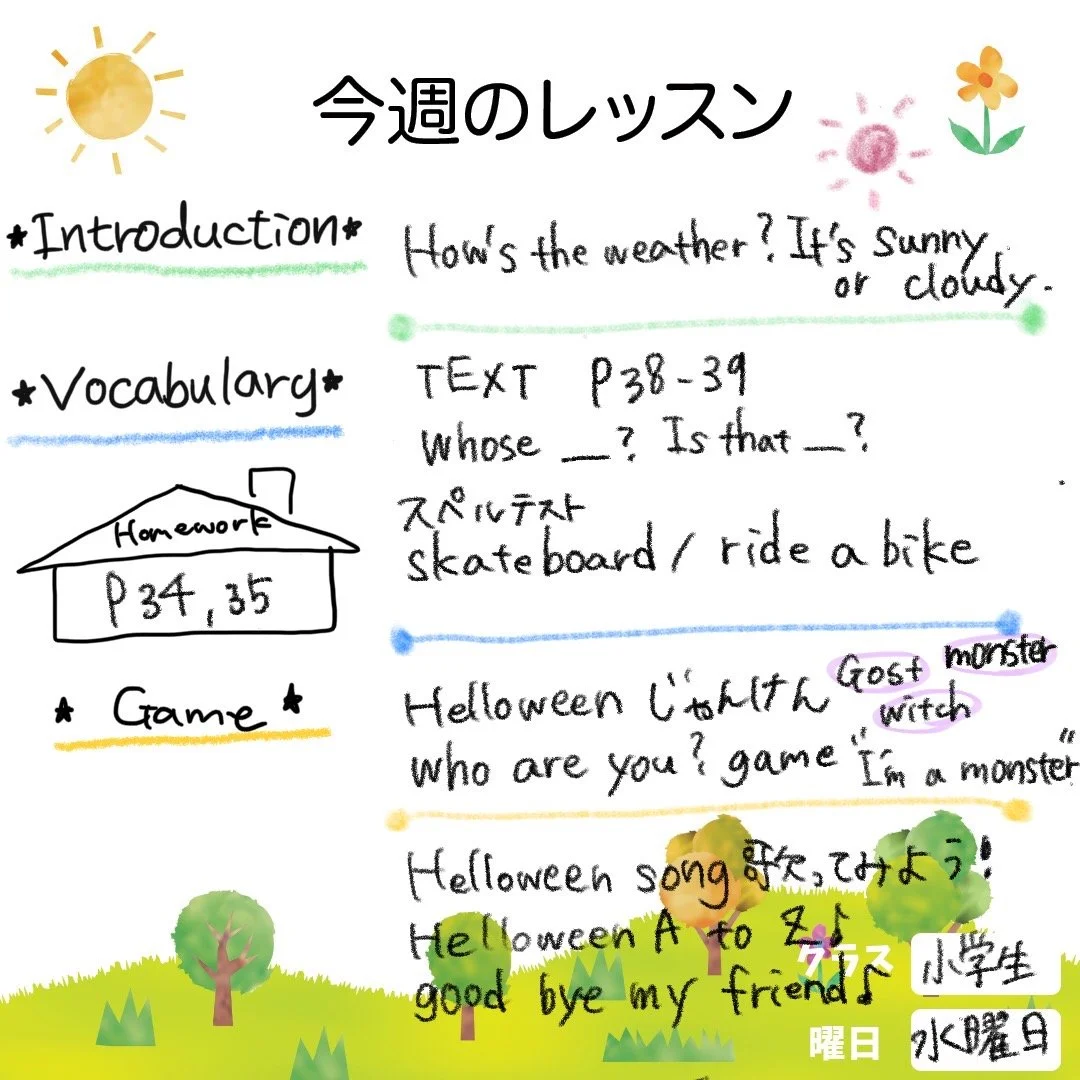 今週のレッスン
*Introduction*
How's the weather? It's sunny
or cloudy.
*Vocabulary*
TEXT P38-39
whose __? Is that __?
スペルテスト
skateboard / ride a bike
Homework
P34,35
* Game *
Helloween じゃんけん Gost monster
witch
who are you? game "I'm a monster"
Helloween song歌ってみよう!
Helloween A to Z♪
good bye my friend♪
クラス 小学生
曜日 水曜日